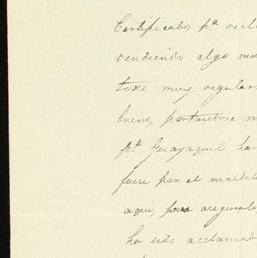 Certificados p.ª recl
vendiendo algo mu
todo muy regular
bueno, portandose m
p.ª Guayaquil ha
fuere por el maldi
aqui, para asegurarl
ha sido aclamad